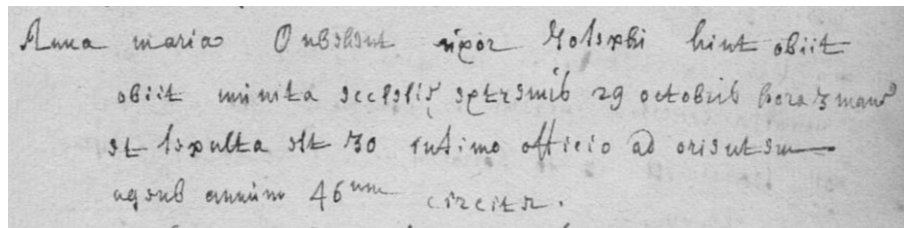 Anna maria uxor Josephi hint obiit
obiit munita ecclesiæ extremis 29 octobris hora 3 mane
et sepulta est 30 infimo officio ad orientem
agens annum 46um circiter.